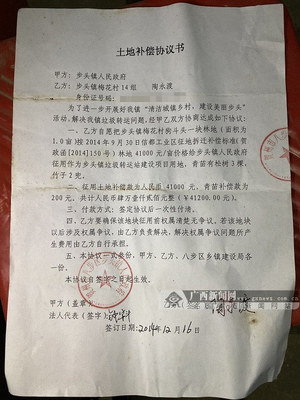 土地补偿协议书
甲方：步头镇人民政府
乙方：步头镇梅花村14组 陶水
身份证号码：
为了进一步开展好我镇“清洁城镇乡村，建设美丽步头”
活动，解决我镇垃圾转运问题，经甲乙双方协商达成如下协议：
一、乙方自愿把步头镇梅花村狗斗头一块林地（面积为
1.0亩）按2014年9月30日信都工业区征地拆迁补偿标准(贺
政函[2014]150号) 林地41000元/亩价格给步头镇人民政府
征用作为步头镇垃圾转运站建设项目用地，青苗有桉树3棵，
竹子2兜。
二、征用土地补偿款为人民币41000元，青苗补偿款为
200元，共计人民币肆万壹仟贰佰元整（￥41200.00元）。
三、付款方式：签定协议后一次性付清。
四、乙方要确保该地块征用前权属清楚无争议，若该地块
以后涉及权属争议，由乙方负责解决，解决权属争议问题所产
生费用由乙方自行承担。
五、本协议一式叁份，甲方、乙方、八步区乡镇建设局各
一份。
本协议自签字之日起生效。
甲方（盖章）
法人代表（签字）：
签订日期：2014年12月16日
广西新闻网